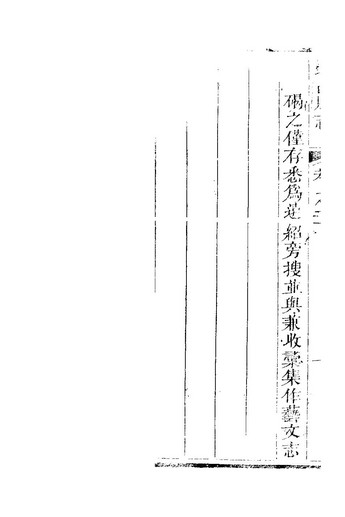 碣之僅存悉為遠紹旁搜並與兼收彙集作藝文志